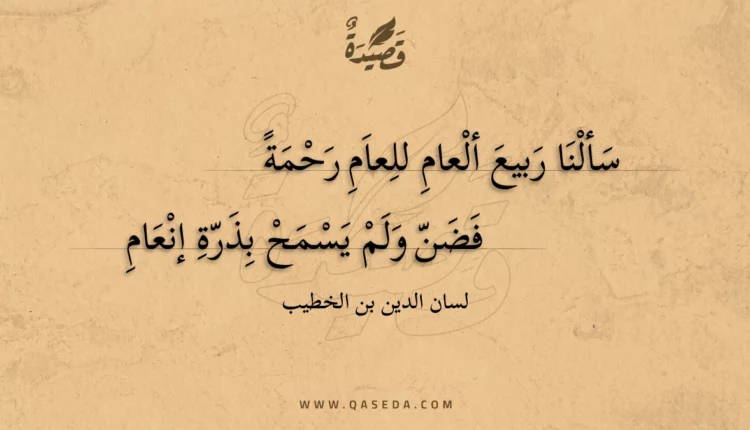 قَصِيْدَةٌ
سَألْنَا رَبيعَ ألْعامِ للِعاَمِ رَحْمَةً
فَضَنّ وَلَمْ يَسْمَحْ بِذَرّةِ إنْعَامِ
لسان الدين بن الخطيب
WWW.QASEDA.COM